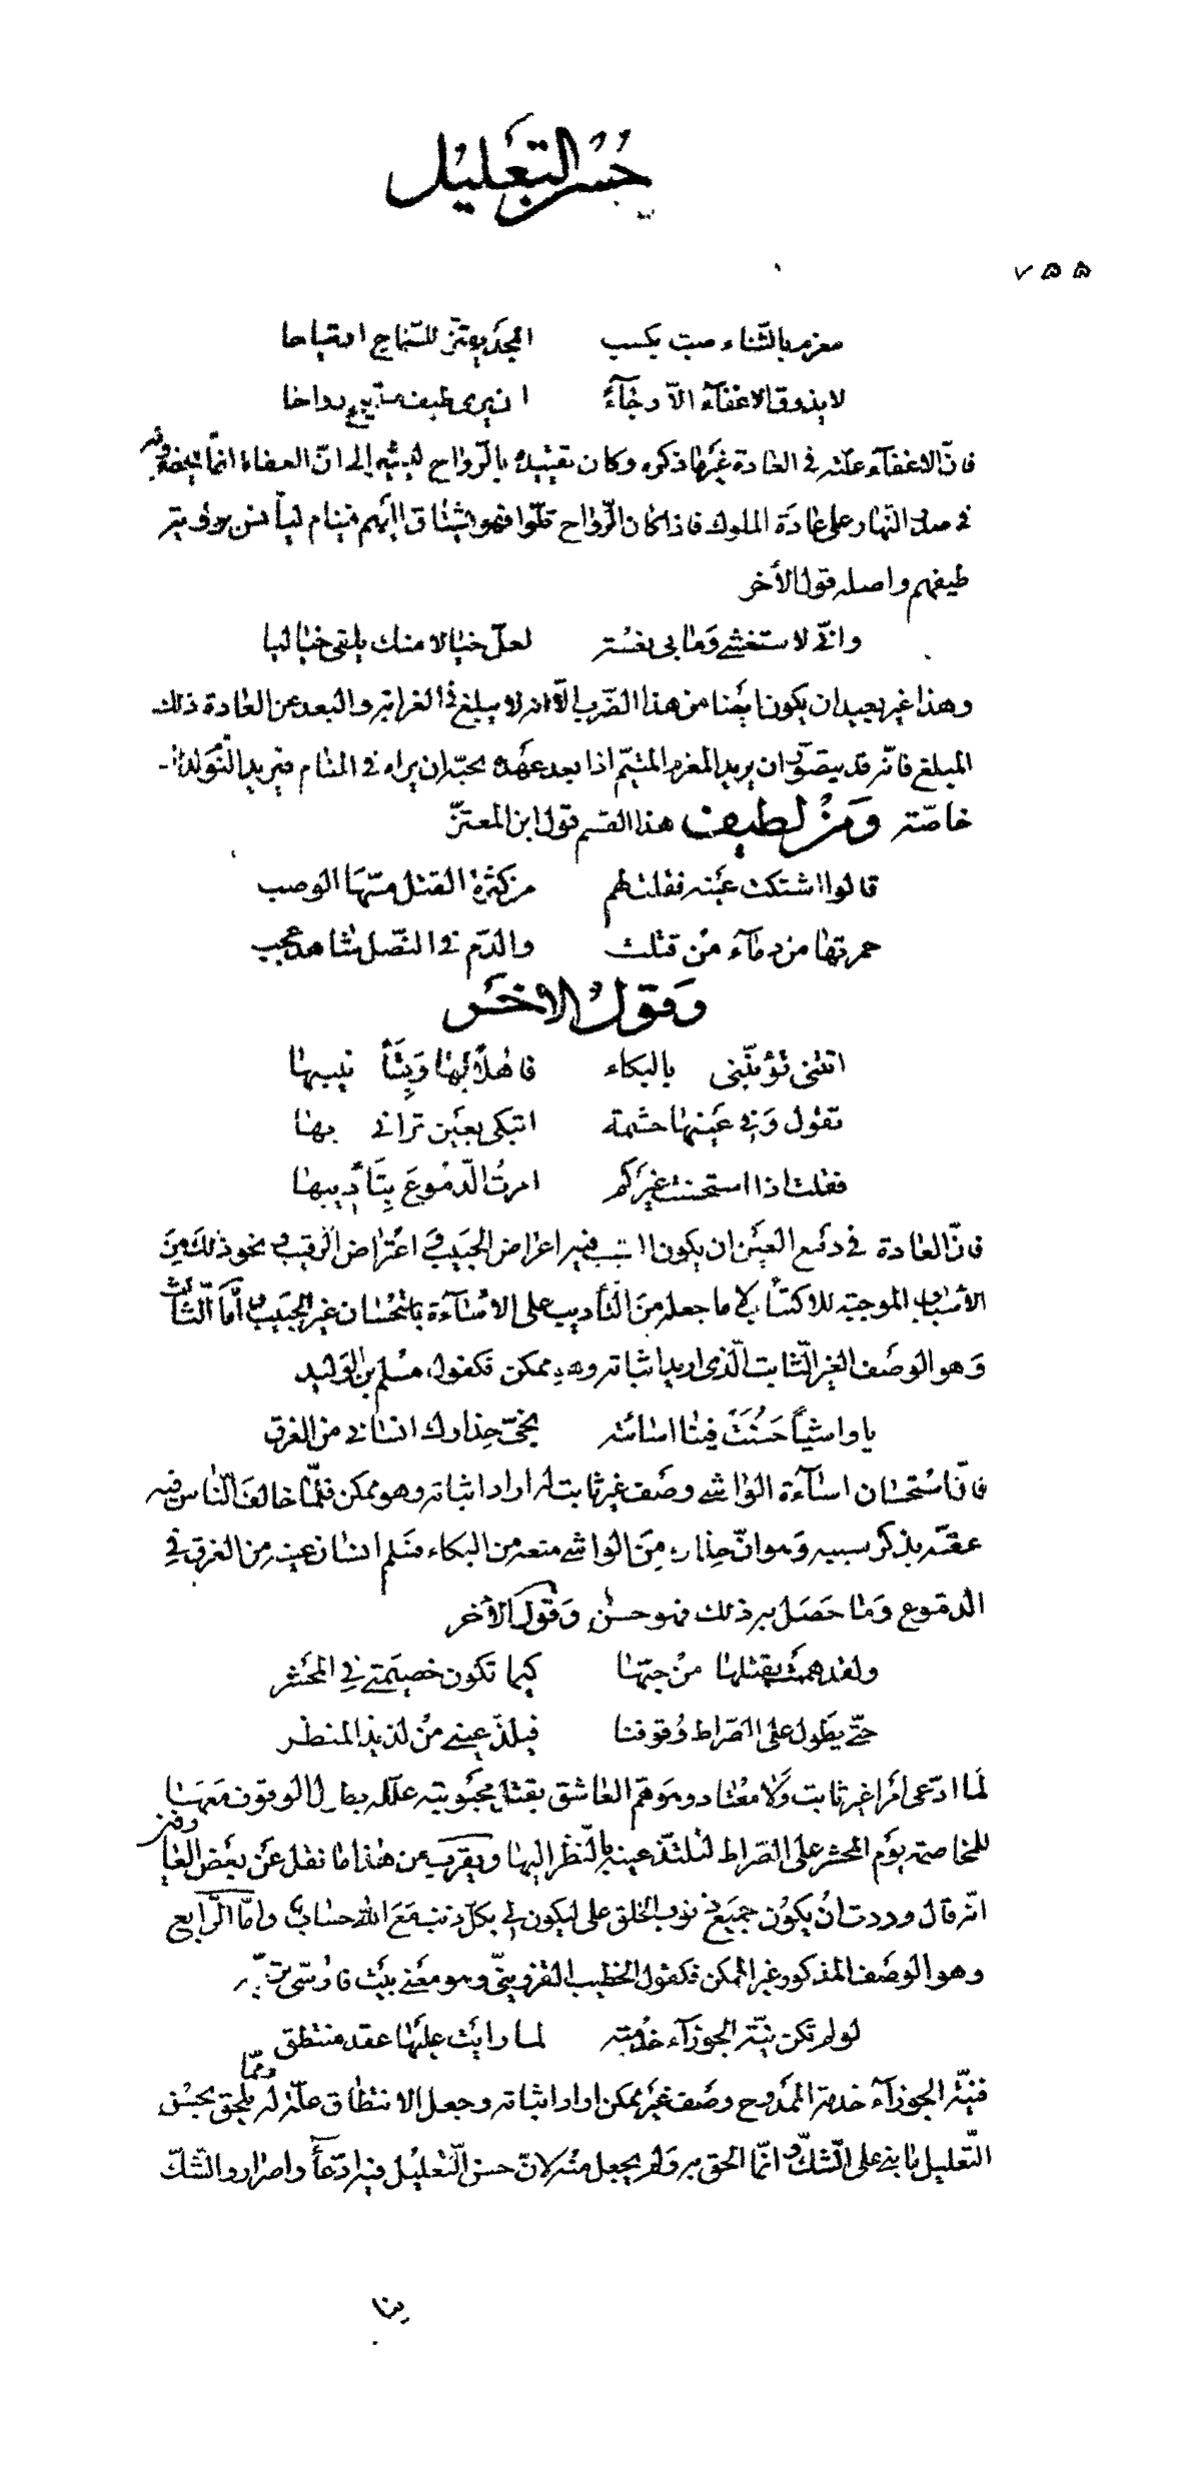 حُسْنُ التَّعْلِيل
٧٥٥
مغرم بالثناء صب بكسب المجد يهتز للسماح ارتياحا
لا يذوق الاغفآء الا رجآءً ان يرى طيف مستميح رواحا
فانّ الاغفآء علته فى العادة غيرها ذكره وكان تقييده بالرّواح ليشير الى انّ العفاة انما يحضرونه
فى صدر النهار على عادة الملوك فاذا كان الرّواح قلّوا فهو يشتاق اليهم فينام ليأنس برؤية
طيفهم واصله قول الأخر
وانّى لاستغشى وَما بى نعسة لعلّ خيالا منك يلقى خياليا
وهذا غير بعيد ان يكون ايضا من هذا الضّرب الّا انه لا يبلغ فى الغرابة والبعد عن العادة ذلك
المبلغ فانّه قد يتصوّر ان يريد المغرم المتيّم اذا بعد عهده بحبّه ان يراه فى المنام فيريد النّوم لذلك
خاصّة وَمِنْ لطيف هذا القسم قول ابن المعتزّ
قالوا اشتكت عينه فقلت لهم من كثرة القتل مسّها الوصب
حمرتها من دمآء مَنْ قتلت والدّم فى النّصل شاهد عجب
وَقولُ الاخَر
اتتنى تؤنّبنى بالبكاء فاهلًا بها وَبِتَأْنيبها
تقول وَفى عَينها حشمة اتبكى بعَين ترانى بها
فقلت اذا استحسنت غيركم امرتُ الدّمُوعَ بِتَأديبها
فانّ العادة فى دمع العَين ان يكون السبب فيه اعراض الحبَيب وَ اعتراض الرّقيب و نحو ذلك مِنَ
الأسْباب الموجبة للاكتئاب لا ما جعله مِنَ التّأديب على الاسآءة باستحسان غير الحَبيب وامّا الثالث
وَهو الوصَف الغير الثّابت الّذى اريد اثباته وهو ممكن فكقول مسْلم بن الوَليد
يا واشياً حَسُنَتْ فِينا اسائته نجّى حِذارك انسانى من الغرق
فانّ استحسان اسآءة الواشى وصَف غير ثابت له اراد اثباته وهو ممكن فلمّا خالف النّاس فيه
عقّبه بذكر سببه وَهو انّ حِذاره مِنَ الواشى منعه من البكاء فسَلم انسان عينه من الغرق فِى
الدموع وَما حَصَل به ذلك فهو حسَن وَقول الأخر
ولقد هممت بقتلها مِنْ حبّها كيما تكون خصيمتى فِى المحشر
حتّى يطَول على الصّراط وُقوفنا فيلذّ عينى مِنْ لذيذ المنظر
لَما ادّعى امرا غير ثابت وَلا معْتاد وهوَ همّ العاشق بقتل محبَوبته علّله بطول الوقوف مَعَها
للمخاصمة يوَم المحشر على الصّراط لتلتذّ عينه بالنّظر اليها ويقرب من هذا ما نقل عن بعض العارفين
انّه قال وددت ان يكون جميع ذنوب الخلق على ليكون لى بكلّ ذنب مَعَ الله حساب وامّا الرّابع
وهو الوصَف المذكور غير الممكن فكقول الخطيب القزوينىّ وهو معنى بيت فارسى
لو لم تكن نيّة الجوزآء خدمته لما رايت عليها عقد منتطق
فنيّة الجوزآء خدمة الممدوح وصَف غير ممكن اراد اثباته وجعل الانتطاق علّة له وممّا يلحق بحسْن
التّعليل ما بنى على الشّكّ و انّما الحق به وَلم يجعل منه لانّ حسن التّعليل فيه ادّعاء واصرار والشّكّ
ينا